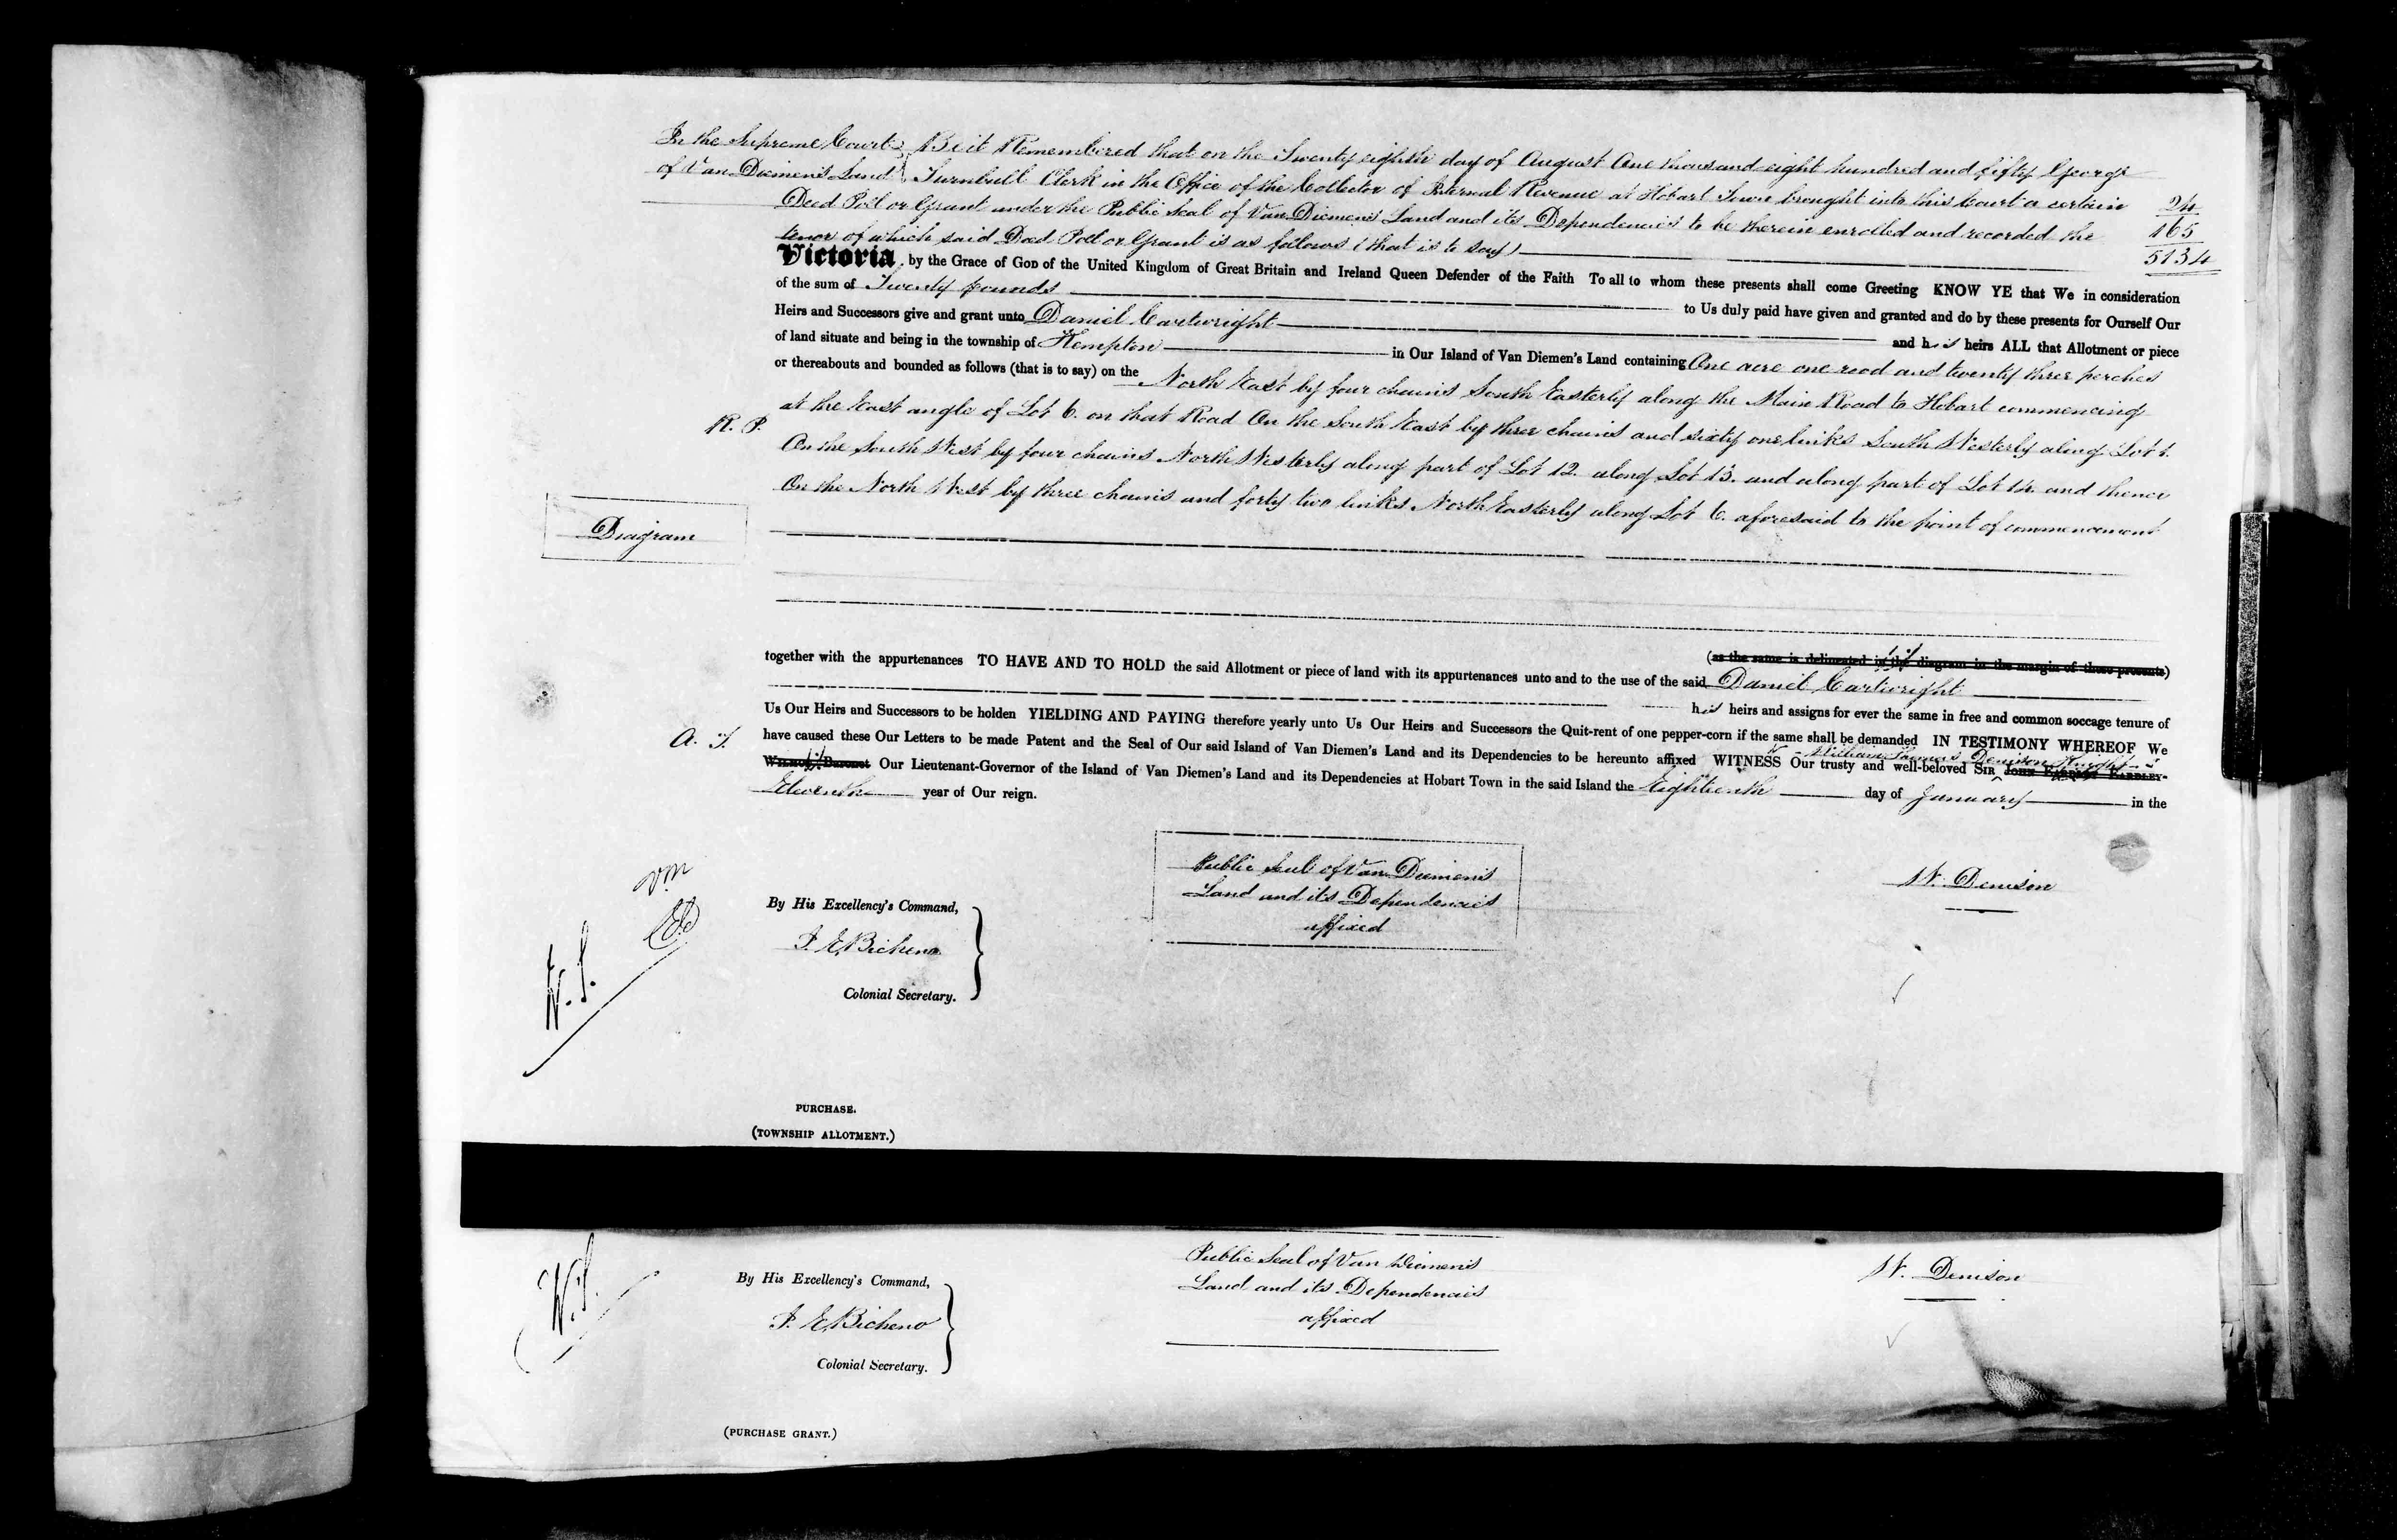 In the Supreme Court } Be it Remembered that on the Twenty eighth day of August One thousand eight hundred and fifty George
of Van Diemen's Land } Turnbull Clerk in the Office of the Collector of Internal Revenue at Hobart Town brought into this Court a certain
Deed Poll or Grant under the Public Seal of Van Diemen's Land and its Dependencies to be therein enrolled and recorded the
tenor of which said Deed Poll or Grant is as follows (that is to say)
24
165
5134
Victoria by the Grace of GOD of the United Kingdom of Great Britain and Ireland Queen Defender of the Faith To all to whom these presents shall come Greeting KNOW YE that We in consideration
of the sum of Twenty pounds to Us duly paid have given and granted and do by these presents for Ourself Our
Heirs and Successors give and grant unto Daniel Cartwright and his heirs ALL that Allotment or piece
of land situate and being in the township of Kempton in Our Island of Van Diemen's Land containing One acre one rood and twenty three perches
or thereabouts and bounded as follows (that is to say) on the North East by four chains South Easterly along the Main Road to Hobart commencing
at the East angle of Lot 6. on that Road On the South East by three chains and sixty one links South Westerly along Lot 1.
R. P.
On the South West by four chains North Westerly along part of Lot 12. along Lot 13. and along part of Lot 14. and thence
On the North West by three chains and forty two links North Easterly along Lot 6. aforesaid to the point of commencement
Diagram
(as the same is delineated in the diagram in the margin of these presents)
together with the appurtenances TO HAVE AND TO HOLD the said Allotment or piece of land with its appurtenances unto and to the use of the said Daniel Cartwright
his heirs and assigns for ever the same in free and common soccage tenure of
Us Our Heirs and Successors to be holden YIELDING AND PAYING therefore yearly unto Us Our Heirs and Successors the Quit-rent of one pepper-corn if the same shall be demanded IN TESTIMONY WHEREOF We
A. T.
have caused these Our Letters to be made Patent and the Seal of Our said Island of Van Diemen's Land and its Dependencies to be hereunto affixed WITNESS Our trusty and well-beloved SIR William Thomas Denison Knight JOHN EARDLEY EARDLEY-
WILMOT Baronet Our Lieutenant-Governor of the Island of Van Diemen's Land and its Dependencies at Hobart Town in the said Island the Eighteenth day of January in the
Eleventh year of Our reign.
Public Seal of Van Diemen's
Land and its Dependencies
affixed
W. Denison
By His Excellency's Command,
J. E. Bicheno
Colonial Secretary.
PURCHASE.
(TOWNSHIP ALLOTMENT.)
Public Seal of Van Diemen's
Land and its Dependencies
affixed
W. Denison
By His Excellency's Command,
J. E. Bicheno
Colonial Secretary.
(PURCHASE GRANT.)